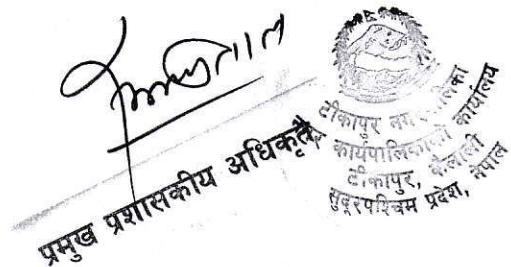 प्रमुख प्रशासकीय अधिकृत
टीकापुर नगरपालिका
कार्यपालिकाको कार्यालय
टीकापुर, कैलाली
सुदूरपश्चिम प्रदेश, नेपाल